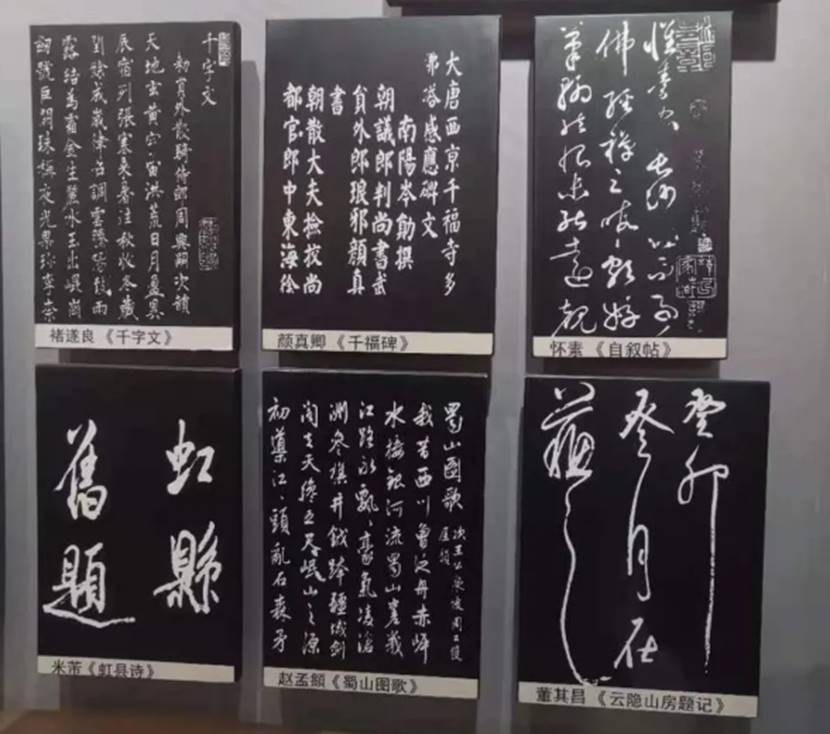 千字文
勅員外散騎侍郎周興嗣次韻
天地玄黃宇宙洪荒日月盈昃
辰宿列張寒來暑往秋收冬藏
閏餘成歲律召調雲騰陽致雨
露結為霜金生麗水玉出崐崗
劒號巨闕珠稱夜光果珍李柰
褚遂良《千字文》
大唐西京千福寺多
寶塔感應碑文
南陽岑勛撰
朝議郎判尚書武
員外郎琅邪顏真
書
朝散大夫檢校尚
都官郎中東海徐
颜真卿《千福碑》
懷素家長沙幼而事
佛經禪之暇頗好
筆翰然恨未能遠覩
怀素《自叙帖》
虹縣
舊題
米芾《虹县诗》
蜀山圖歌
我昔西川曾泛舟赤岸
水接銀河流蜀山
初導江江頭亂石森矛
赵孟頫《蜀山图歌》
癸卯
登月在
董其昌《云隐山房题记》